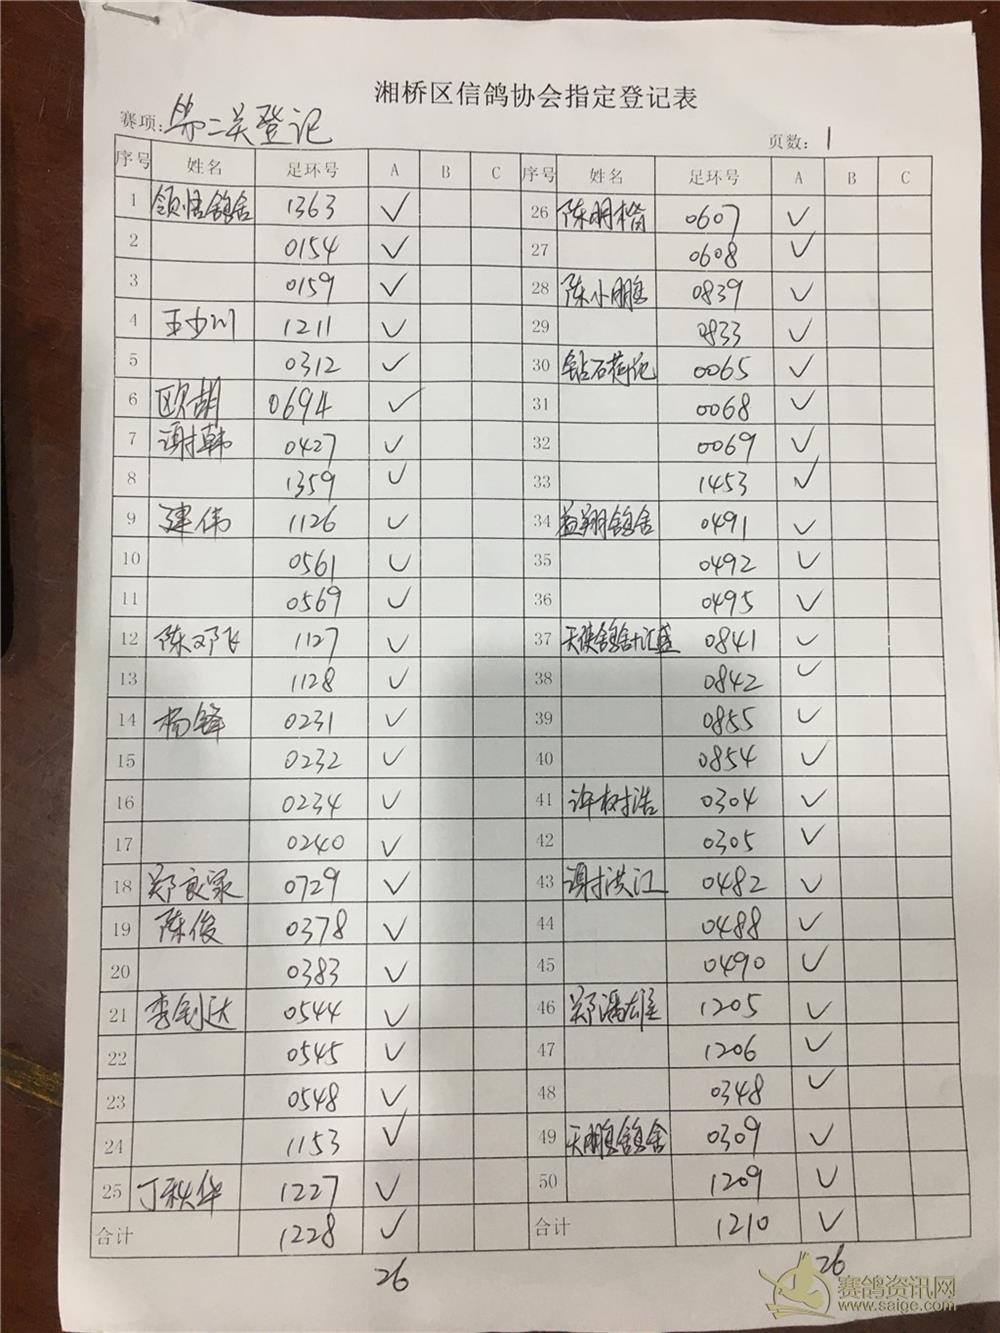 湘桥区信鸽协会指定登记表
赛项: 第二关登记 页数: 1
序号 姓名 足环号 A B C 序号 姓名 足环号 A B C
1 领悟鸽舍 1363 ✓ 26 陈明楷 0607 ✓
2 0154 ✓ 27 0608 ✓
3 0159 ✓ 28 陈小鹏 0839 ✓
4 王少川 1211 ✓ 29 0833 ✓
5 0312 ✓ 30 钻石荷池 0065 ✓
6 欧胡 0694 ✓ 31 0068 ✓
7 谢韩 0427 ✓ 32 0069 ✓
8 1359 ✓ 33 1453 ✓
9 建伟 1126 ✓ 34 益翔鸽舍 0491 ✓
10 0561 ✓ 35 0492 ✓
11 0569 ✓ 36 0495 ✓
12 陈邓飞 1127 ✓ 37 天使鸽舍+汇盛 0841 ✓
13 1128 ✓ 38 0842 ✓
14 杨锋 0231 ✓ 39 0855 ✓
15 0232 ✓ 40 0854 ✓
16 0234 ✓ 41 许树浩 0304 ✓
17 0240 ✓ 42 0305 ✓
18 郑家 0729 ✓ 43 谢洪江 0482 ✓
19 陈俊 0378 ✓ 44 0488 ✓
20 0383 ✓ 45 0490 ✓
21 李钊达 0544 ✓ 46 郑潘雄 1205 ✓
22 0545 ✓ 47 1206 ✓
23 0548 ✓ 48 0348 ✓
24 1153 ✓ 49 天鹏鸽舍 0309 ✓
25 丁秋华 1227 ✓ 50 1209 ✓
合计 1228 ✓ 合计 1210 ✓
26 26
赛鸽资讯网
www.saige.com